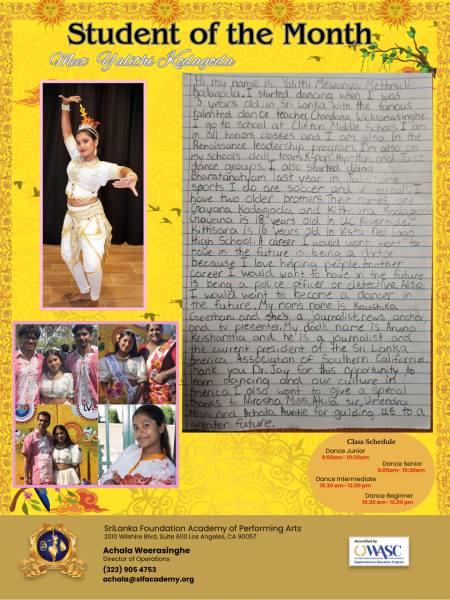 Student of the Month
Meet Yalithi Kodagoda
Hi my name is Yalithi Mewanya Methnuli
Kodagoda. I started dancing when I was
years old in Sri Lanka with the famous
talented dance teacher, Chandana Wickramasinghe.
I go to school at Clifton Middle School. I am
in all honors classes and I am also in the
Renaissance leadership program. I'm also on
my schools drill team, K-pop, Hip-Hop, and Jazz
dance groups. I also started doing
Bharatanatyam last year in The
sports I do are soccer and I
have two older brothers. Their names are
Gnayana Kodagoda and Kithisara Kodagoda
Gnayana is 18 years old in UC Riverside
Kithisara is 16 years old in Vista Del Lago
High School. A career I would want to
have in the future is being a doctor
because I love helping people. Another
career I would want to have in the future
is being a police officer or detective. Also,
I would want to become a dancer in
the future. My moms name is Kaushika
Geethani and she's a journalist, news anchor,
and tv presenter. My dad's name is Aruna
Krishantha and he is a journalist and
the current president of the Sri Lanka
America Association of Southern California.
Thank you Dr. Jay for this opportunity to
learn dancing and our culture in
America. I also want to give a special
thanks to Nirosha Miss, Akila sir, Umendra
Miss and Achala Auntie for guiding us to a
greater future.
Class Schedule
Dance Junior
9:00am- 10:30am
Dance Senior
9:00am-10:30am
Dance Intermediate
10.30 am-12.00 pm
Dance Beginner
10.30 am-12.00 pm
SriLanka Foundation Academy of Performing Arts
2010 Wilshire Blvd, Suite 600 Los Angeles, CA 90057
Achala Weerasinghe
Director of Operations
(323) 905 4753
achala@slfacademy.org
Accredited by
WASC
Supplementary Education Program